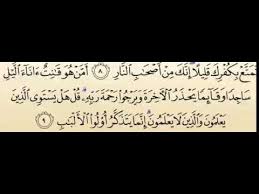 تَمَتَّعْ بِكُفْرِكَ قَلِيلًا إِنَّكَ مِنْ أَصْحَٰبِ ٱلنَّارِ ٨ أَمَّنْ هُوَ قَٰنِتٌ ءَانَآءَ ٱلَّيْلِ
سَاجِدًا وَقَآئِمًا يَحْذَرُ ٱلْءَاخِرَةَ وَيَرْجُوا۟ رَحْمَةَ رَبِّهِۦ ۗ قُلْ هَلْ يَسْتَوِى ٱلَّذِينَ
يَعْلَمُونَ وَٱلَّذِينَ لَا يَعْلَمُونَ ۗ إِنَّمَا يَتَذَكَّرُ أُو۟لُوا۟ ٱلْأَلْبَٰبِ ٩